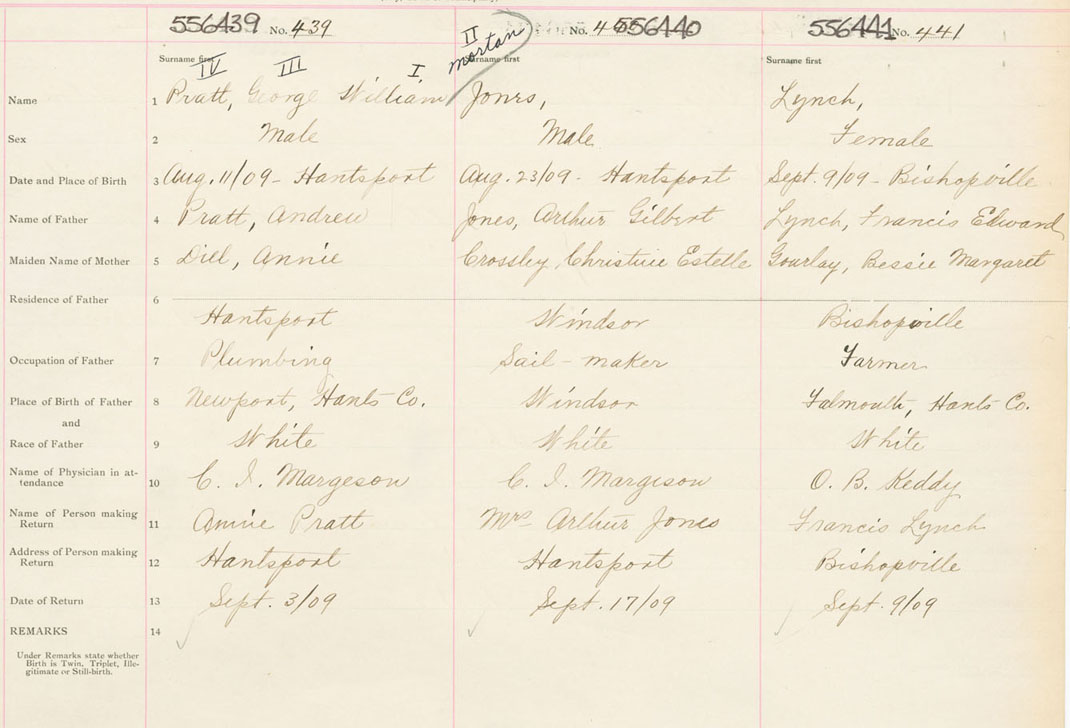 556439 No. 439 No. 556440 556441 No. 441
II
Morton
Surname first Surname first Surname first
IV III I.
Name 1 Pratt, George William Jones, Lynch,
Sex 2 Male Male Female
Date and Place of Birth 3 Aug. 11/09 - Hantsport Aug. 23/09 - Hantsport Sept. 9/09 - Bishopville
Name of Father 4 Pratt, Andrew Jones, Arthur Gilbert Lynch, Francis Edward
Maiden Name of Mother 5 Dill, Annie Crossley, Christine Estelle Gourlay, Bessie Margaret
Residence of Father 6
Hantsport Windsor Bishopville
Occupation of Father 7 Plumbing Sail-maker Farmer
Place of Birth of Father 8 Newport, Hants Co. Windsor Falmouth, Hants Co.
and
Race of Father 9 White White White
Name of Physician in at-
tendance 10 C. I. Margeson C. I. Margeson O. B. Keddy
Name of Person making
Return 11 Annie Pratt Mrs Arthur Jones Francis Lynch
Address of Person making
Return 12 Hantsport Hantsport Bishopville
Date of Return 13 Sept. 3/09 Sept. 17/09 Sept. 9/09
REMARKS 14
Under Remarks state whether
Birth is Twin, Triplet, Ille-
gitimate or Still-birth.